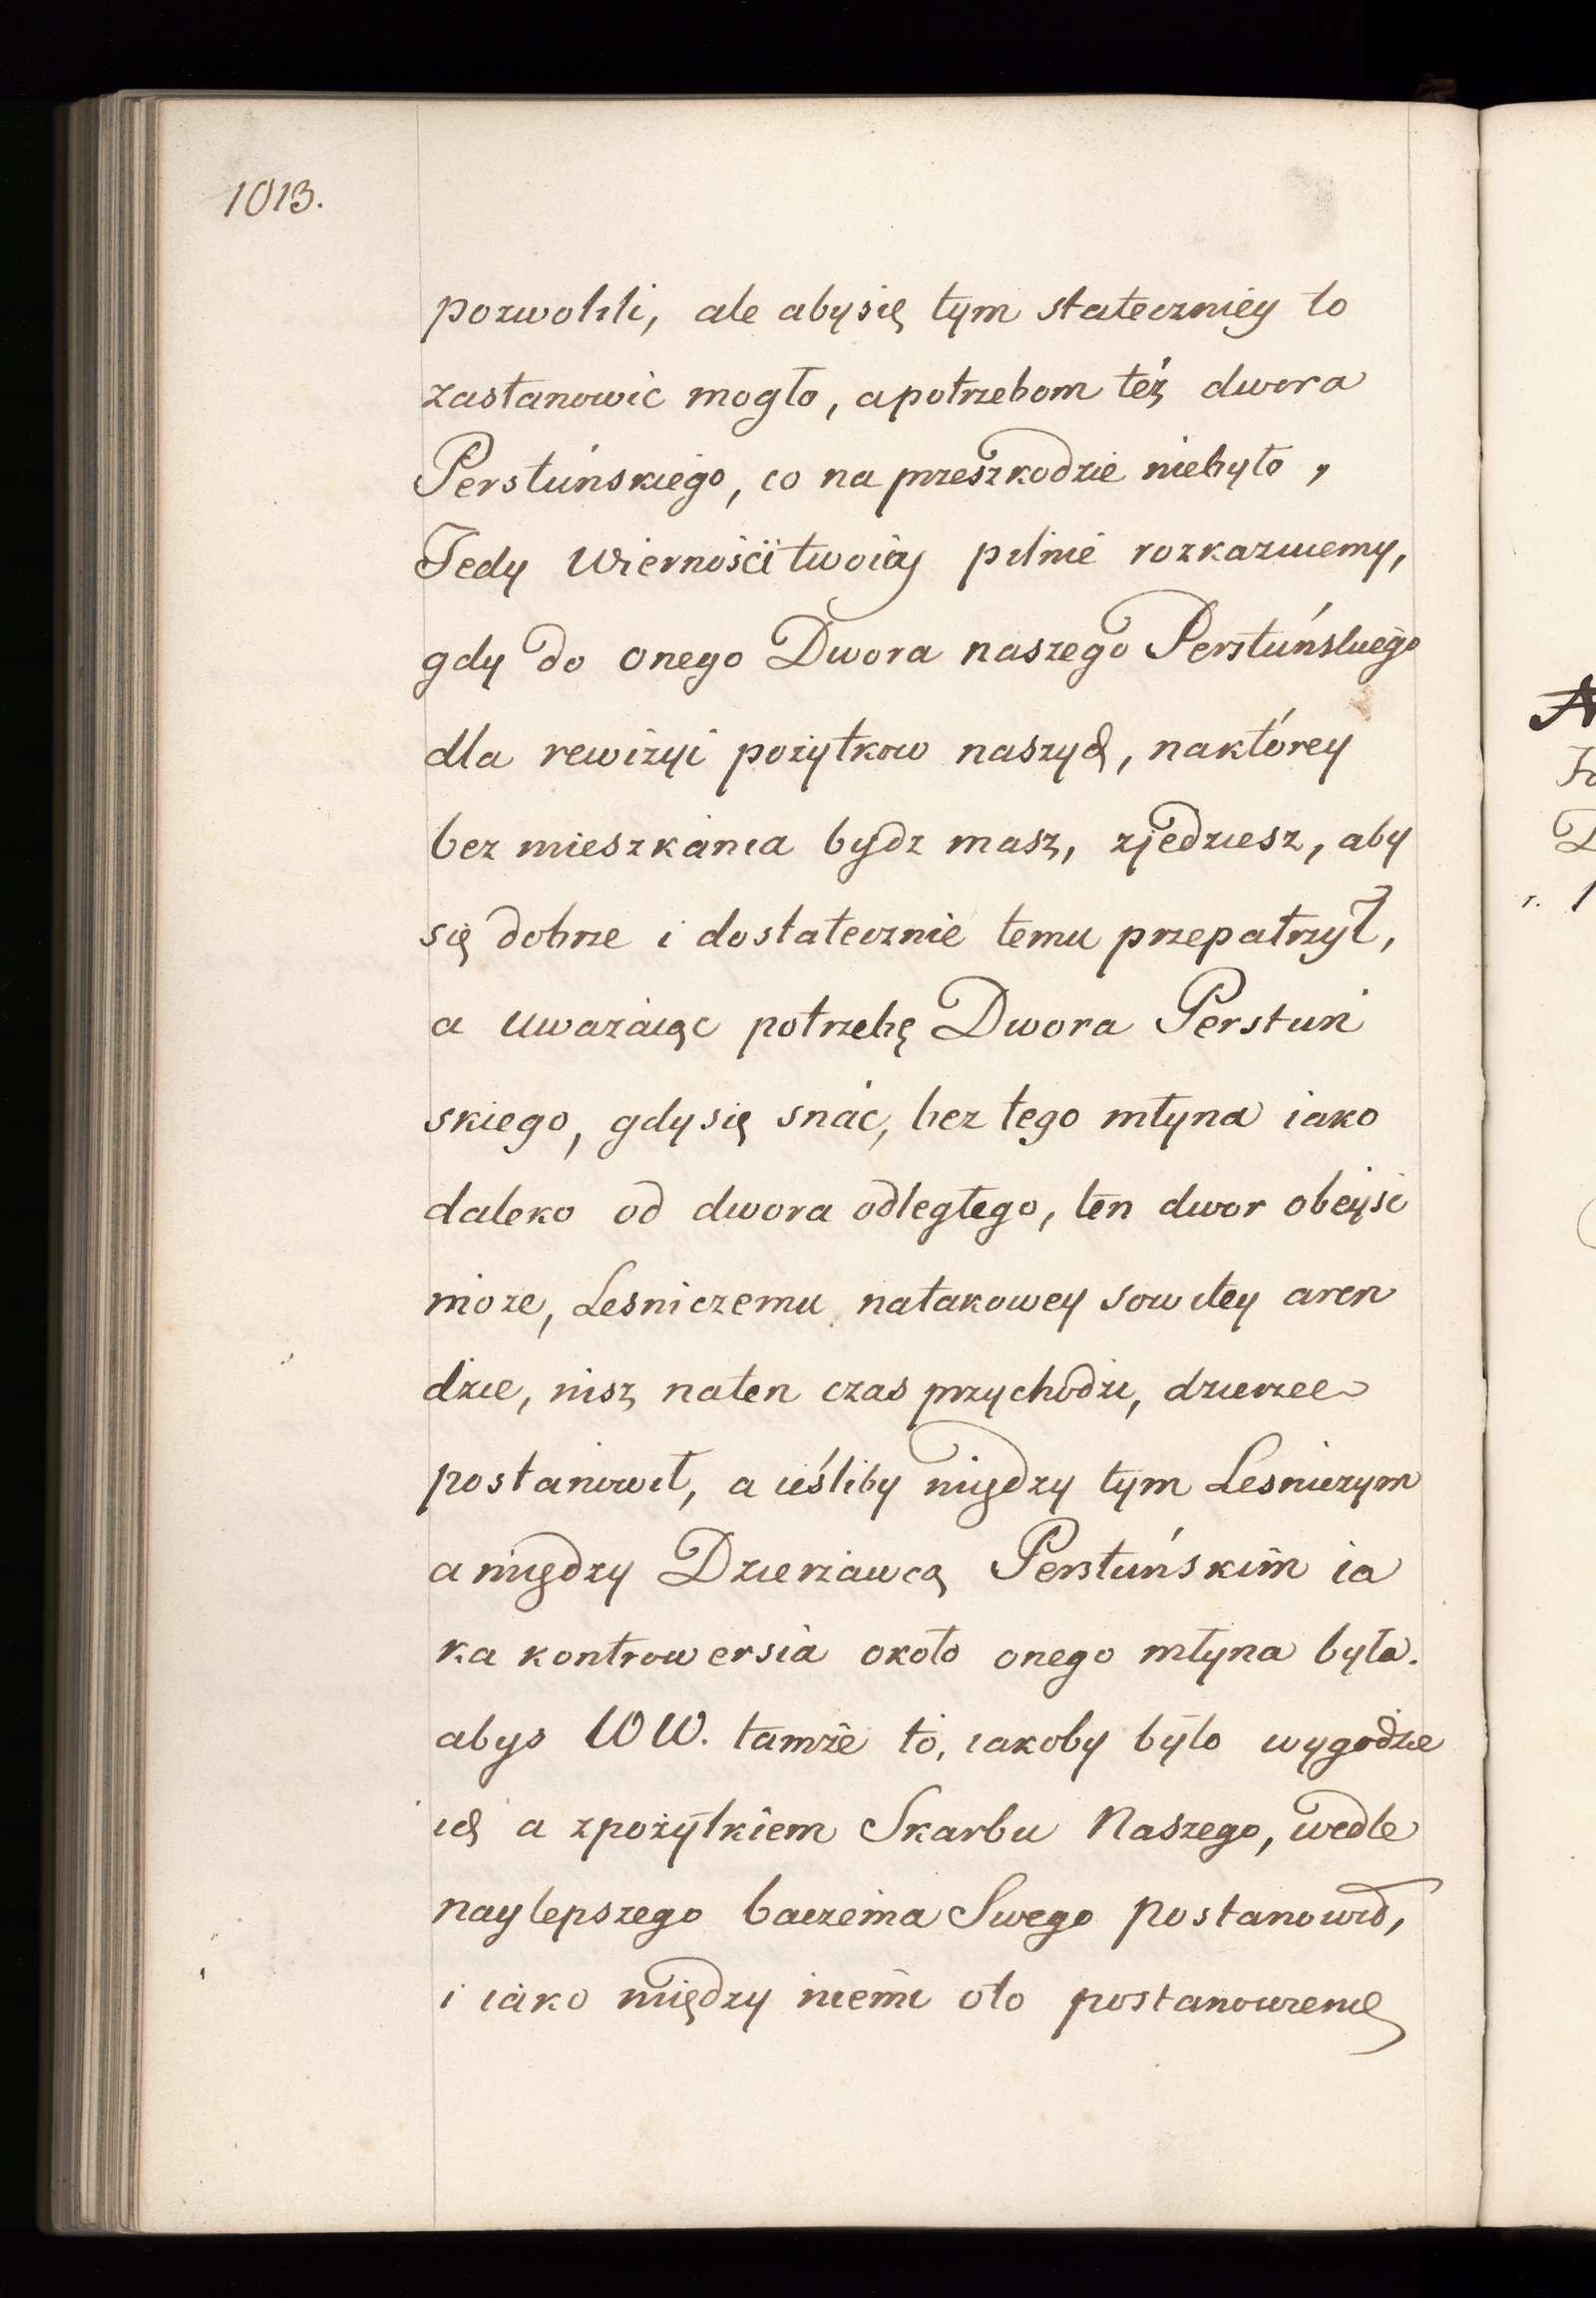 1013.
pozwolili, ale abysię tym stateczniey to
zastanowic mogło, apotrzebom też dwora
Perstuńskiego, co na przeszkodzie niebyło,
Tedy Wiernośći twoiey pilnie rozkazuiemy,
gdy do onego Dwora naszego Perstuńskiego
dla rewizyi pożytkow naszych, naktórey
bez mieszkania bydz masz, zjedziesz, aby
się dobrze i dostatecznie temu przepatrzył,
a uwazaiąc potrzebę Dwora Perstuń
skiego, gdysię snać, bez tego młyna iako
daleko od dwora odległego, ten dwor obeyść
może, Lesniczemu natakowey sowitey aren
dzie, nisz naten czas przychodzi, dzierzec
postanowił, a ieśliby między tym Lesniczym
a między Dzierżawcą Perstuńskim ia
ka kontrowersia około onego młyna była.
abys W W. tamże to, iakoby było wygodzie
ich a zpożytkiem Skarbu Naszego, wedle
naylepszego baczenia Swego postanowił,
i iako między niemi oto postanowienie